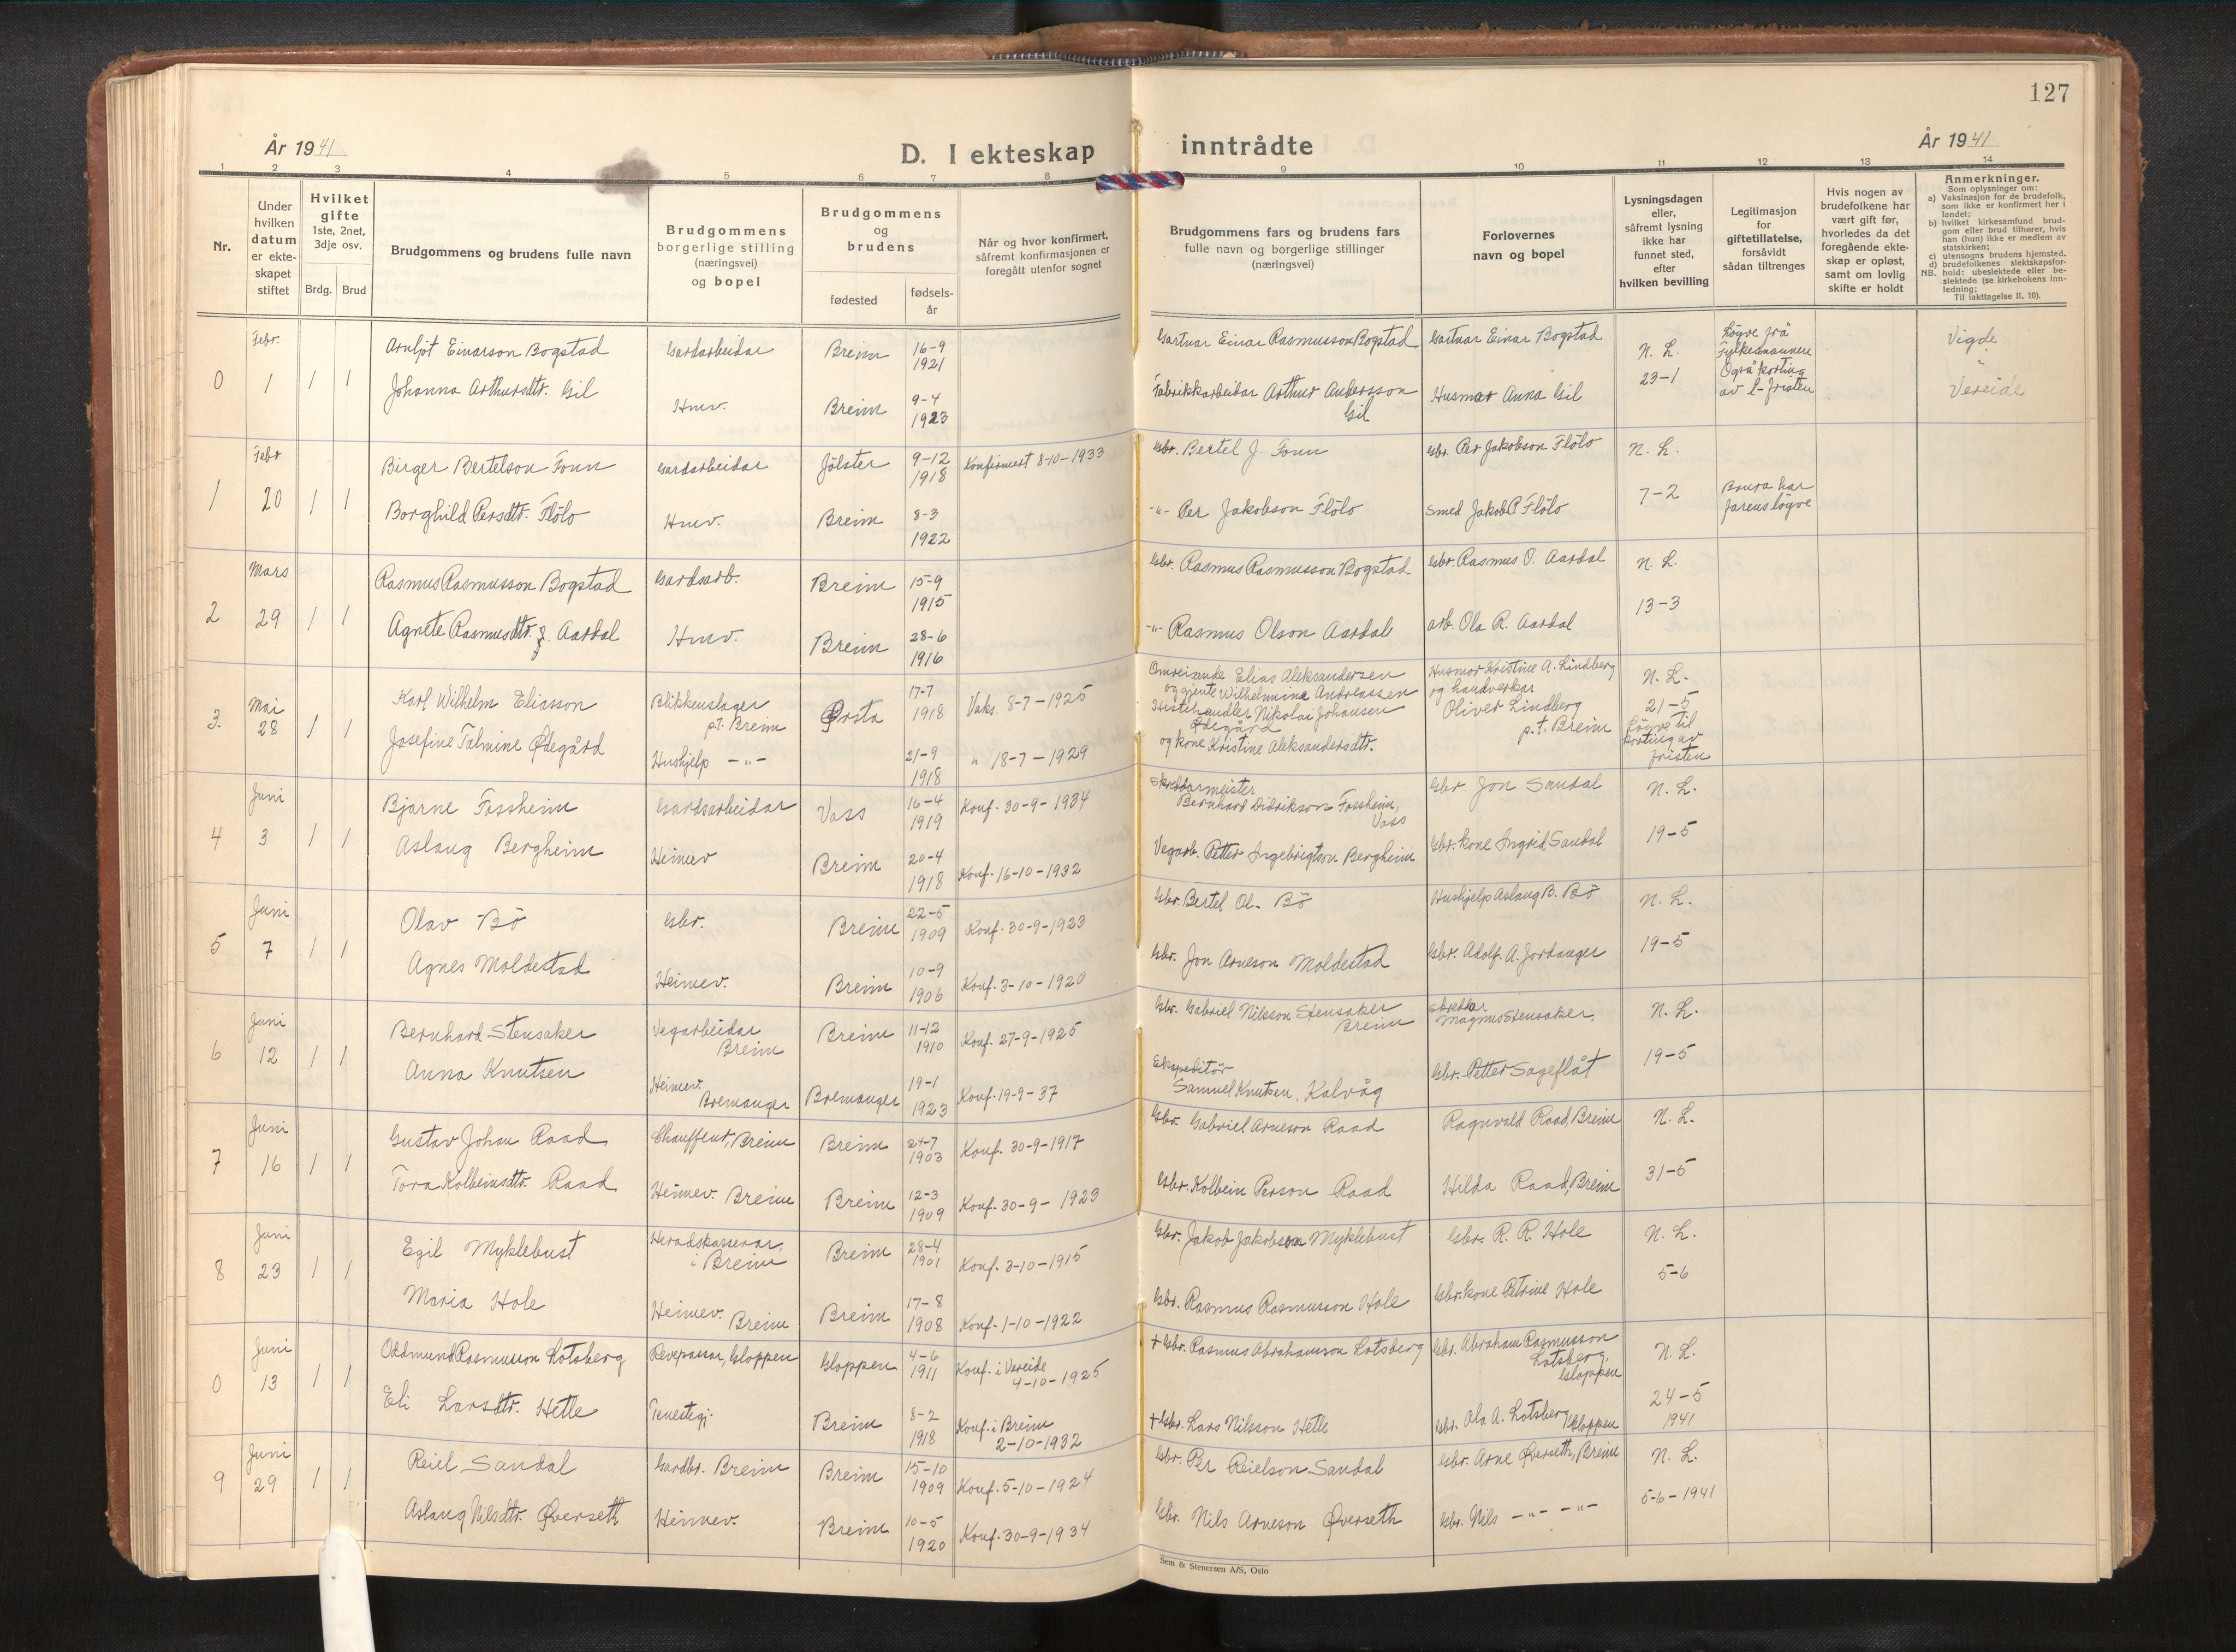 127
År 1941
D. I ekteskap inntrådte
År 1941
1 2 3 4 5 6 7 8 9 10 11 12 13 14
Nr.
Under hvilken datum er ekteskapet stiftet
Hvilket gifte 1ste, 2net, 3dje osv.
Brdg. Brud
Brudgommens og brudens fulle navn
Brudgommens borgerlige stilling (næringsvei) og bopel
Brudgommens og brudens
fødested
fødselsår
Når og hvor konfirmert, såfremt konfirmasjonen er foregått utenfor sognet
Brudgommens fars og brudens fars fulle navn og borgerlige stillinger (næringsvei)
Forlovernes navn og bopel
Lysningsdagen eller, såfremt lysning ikke har funnet sted, efter hvilken bevilling
Legitimasjon for giftetillatelse, forsåvidt sådan tiltrenges
Hvis nogen av brudefolkene har vært gift før, hvorledes da det foregående ekteskap er opløst, samt om lovlig skifte er holdt
Anmerkninger.
Som oplysninger om:
a) Vaksinasjon for de brudefolk, som ikke er konfirmert her i landet;
b) hvilket kirkesamfund brudgom eller brud tilhører, hvis han (hun) ikke er medlem av statskirken;
c) utensogns brudens hjemsted.
d) brudefolkenes slektskapsforhold: ubeslektede eller beslektede (se kirkebokens innledning;
NB.
Til iakttagelse II. 10).
0 Febr. 1 1 1
Arnljot Einarson Bogstad Gardarbeidar Breim 16-9 1921 Gartnar Einar Rasmusson Bogstad Gartnar Einar Bogstad N. L. 23-1 Løyve frå Fylkesmannen Også korting av l-fristen Vigde i Vereide
Johanna Arthursdtr. Gil Hmv. Breim 9-4 1923 Fabrikkarbeidar Arthur Andersson Gil Husmor Anna Gil
1 Febr 20 1 1
Birger Bertelson Fonn Gardarbeidar Jölster 9-12 1918 Konfirmert 8-10-1933 Gbr. Bertel J. Fonn Gbr. Per Jakobson Flölo N. L. 7-2
Borghild Persdtr. Flölo Hmv. Breim 8-3 1922 -"- Per Jakobson Flölo Smed Jakob P. Flölo Brura har farens löyve
2 Mars 29 1 1
Rasmus Rasmusson Bogstad Gardsarb. Breim 15-9 1915 Gbr. Rasmus Rasmusson Bogstad Gbr. Rasmus O. Aardal N. L. 13-3
Agnete Rasmusdtr. f. Aardal Hmv. Breim 28-6 1916 -"- Rasmus Olson Aardal arb. Ola R. Aardal
3. Mai 28 1 1
Karl Wilhelm Eliasson Blikkenslager p.t. Breim Ørsta 17-7 1918 Vaks. 8-7-1925 Omreisande Elias Aleksandersen og gjente Wilhelmine Andreassen Husmor Kristine A. Lindberg og handverkar Oliver Lindberg p.t. Breim N. L. 21-5 Löyve til korting av fristen
Josefine Talmine Ødegård Hushjelp -"- 21-9 1918 " 18-7-1929 Hestehandler Nikolai Johansen Ødegård og kone Kristine Aleksandersdtr.
4 Juni 3 1 1
Bjarne Fossheim Gardsarbeidar Voss 16-4 1919 Konf. 30-9-1934 Skreddarmeister Bernhard Didrikson Fossheim, Voss Gbr Jon Sandal N. L. 19-5
Aslaug Bergheim Heimev Breim 20-4 1918 Konf. 16-10-1932 Vegarb. Petter Ingebrigtson Bergheim Gbr. kone Ingrid Sandal
5 Juni 7 1 1
Olav Bö Gbr. Breim 22-5 1909 Konf. 30-9-1923 Gbr. Bertel Ol. Bö Hushjelp Aslaug B. Bö N. L. 19-5
Agnes Moldestad Heimev. Breim 10-9 1906 Konf. 3-10-1920 Gbr. Jon Arneson Moldestad Gbr. Adolf. A. Jordanger
6 Juni 12 1 1
Bernhard Stensaker Vegarbeidar Breim Breim 11-12 1910 Konf. 27-9-1925 Gbr. Gabriel Nilsson Stensaker Breim Skreddar Magnus Stensaker. N. L. 19-5
Anna Knutsen Heimev. Bremanger Bremanger 19-1 1923 Konf. 19-9-37 Ekspeditör Samuel Knutsen, Kalvåg Gbr. Petter Sageflåt
7 Juni 16 1 1
Gustav Johan Raad Chauffeur, Breim Breim 24-7 1903 Konf. 30-9-1917 Gbr. Gabriel Arneson Raad Ragnvald Raad, Breim N. L. 31-5
Tora Kolbeinsdtr. Raad Heimev. Breim Breim 12-3 1909 Konf. 30-9-1923 Gbr. Kolbein Person Raad Hilda Raad, Breim
8 Juni 23 1 1
Egil Myklebust Heradskasserar, i Breim Breim 28-4 1901 Konf. 3-10-1915 Gbr. Jakob Jakobson Myklebust Gbr. R. R. Hole N. L. 5-6
Maria Hole Heimev. Breim Breim 17-8 1908 Konf. 1-10-1922 Gbr. Rasmus Rasmusson Hole Gbr. kone Petrine Hole
0 Juni 13 1 1
Oddmund Rasmusson Lotsberg Revepassar, Gloppen Gloppen 4-6 1911 Konf. i Vereide 4-10-1925 + Gbr. Rasmus Abrahamson Lotsberg Gbr. Abraham Rasmusson Lotsberg, Gloppen N. L. 24-5 1941
Eli Larsdtr. Hetle Tenestegj. Breim 8-2 1918 Konf. i Breim 2-10-1932 + Gbr. Lars Nilsson Hetle Gbr. Ola A. Lotsberg, Gloppen
9 Juni 29 1 1
Reiel Sandal Gardbr. Breim Breim 15-10 1909 Konf. 5-10-1924 Gbr. Per Reielson Sandal Gbr. Arne Øverseth, Breim N. L. 5-6-1941
Aslaug Nilsdtr. Øverseth Heimev. Breim 10-5 1920 Konf. 30-9-1934 Gbr. Nils Arneson Øverseth Gbr. Nils -"- -"-
Sem & Stenersen A/S, Oslo